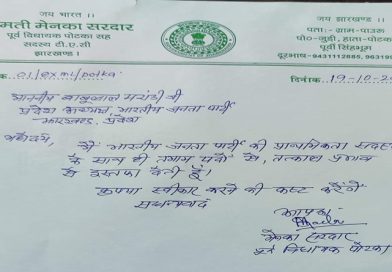 जय भारत ।।
मती मेनका सरदार
पूर्व विधायक पोटका सह
सदस्य टी.ए.सी
झारखण्ड ।
जय झारखण्ड ।।
पता:- ग्राम-पाउरु
पो०-जुड़ी, हाता-पोटका
पूर्वी सिंहभूम
दूरभाष-9431112885, 96319
क 01/ex mL/potka
दिनांक 19-10-20
माननीय बाबूलाल मरांडी जी
प्रदेश अध्यक्ष, भारतीय जनता पार्टी
झारखण्ड प्रदेश
महोदय,
मैं भारतीय जनता पार्टी की प्राथमिकता सदस्
के साथ ही तमाम पदों से, तत्काल प्रभाव
से इस्तफा देती हूँ।
कृपया स्वीकार करने की कष्ट करेंगे
सधन्यवाद
आपका
मेनका सरदार
पूर्व विधायक पोटका